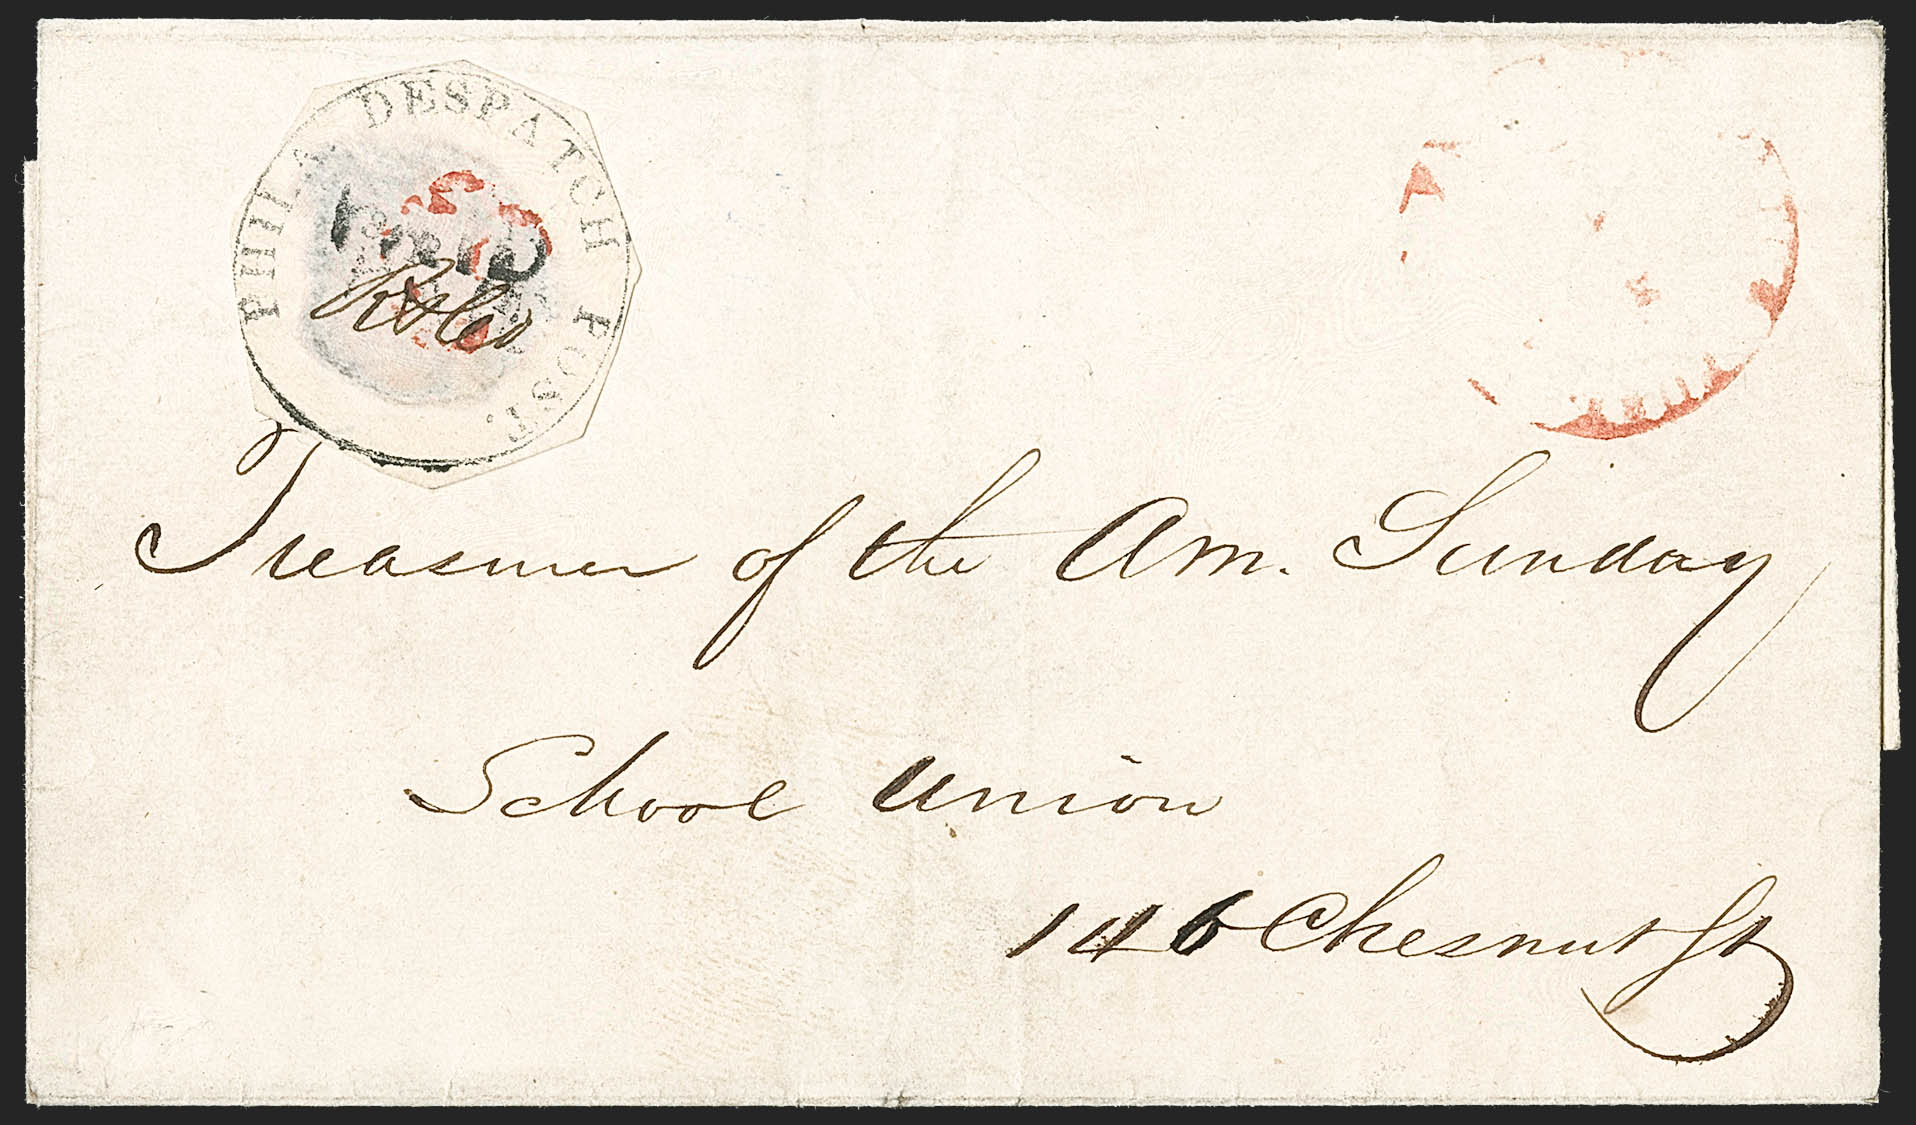 PHILA. DESPATCH POST.
PAID
Treasurer of the Am. Sunday
School Union
146 Chesnut St